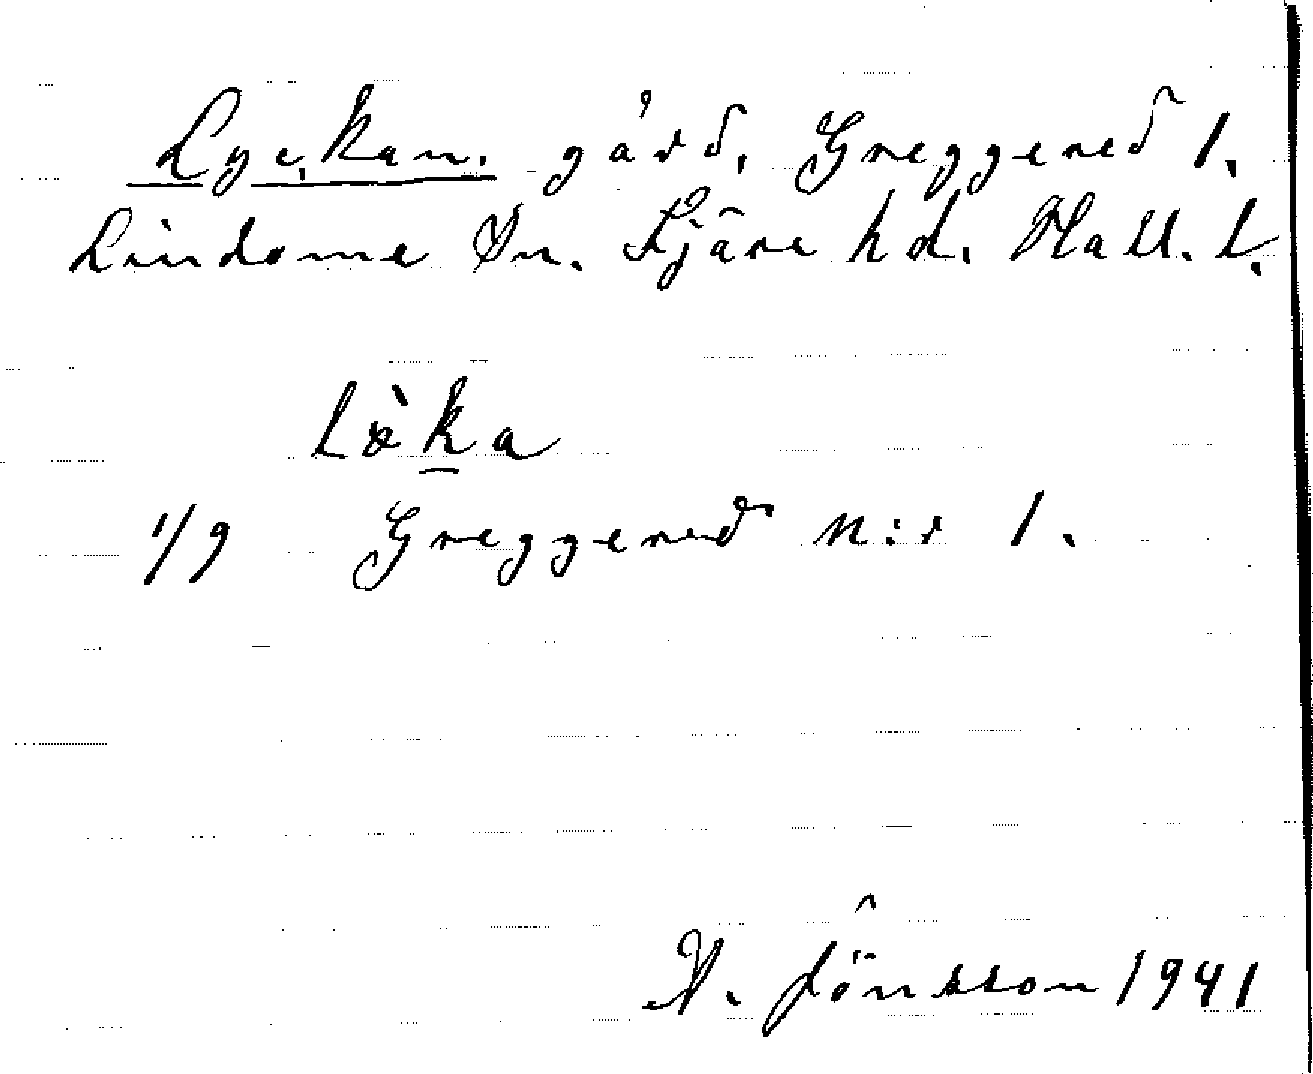 Lyckan. gård, Greggered 1.
Lindome Sn. Fjäre hd. Hall. l.
Lö̀ka
1/9 Greggered n:r 1.
A. Jönsson 1941